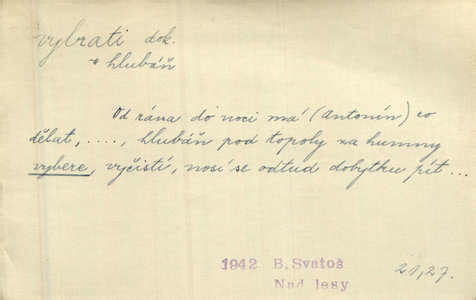 vybrati dok.
" hlubáň
Od rána do noci má (Antonín) co
dělat, ...., hlubáň pod topoly za humny
vybere, vyčistí, nosí se odtud dobytku pít ...
1942 B. Svatoš
Nad lesy
21,27.